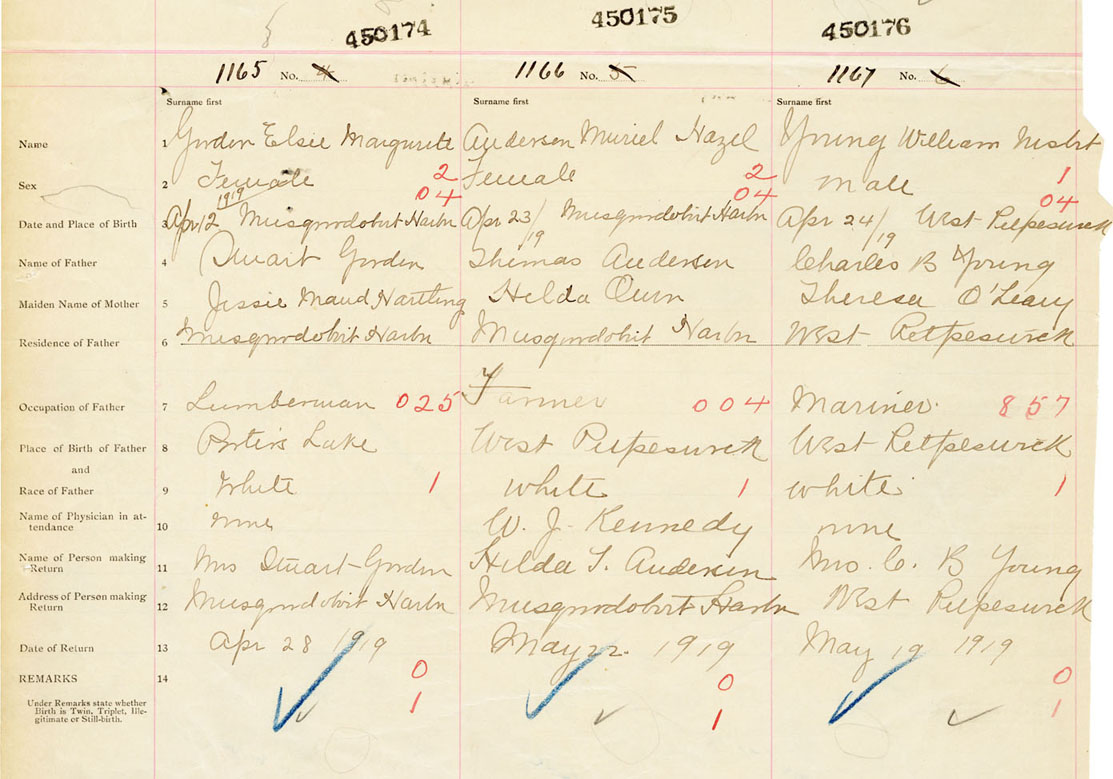 450174 450175 450176
1165 No. 4 1166 No. 5 1167 No. 6
Surname first Surname first Surname first
Name 1 Gordon Elsie Margurete Andersen Muriel Hazel Young William Nesbt
Sex 2 Female 2 Female 2 Male 1
04 04 04
Date and Place of Birth 3 Apr 12 1919 Musquodobit Harbr Apr 23/19 Musquodobit Harbr Apr 24/19 West Petpeswick
Name of Father 4 Stuart Gordon Thomas Andersen Charles B Young
Maiden Name of Mother 5 Jessie Maud Hartling Hilda Theresa O'Leary
Residence of Father 6 Musquodobit Harbr Musquodobit Harbr West Petpeswick
Occupation of Father 7 Lumberman 025 Farmer 004 Mariner. 857
Place of Birth of Father 8 Porters Lake West Petpeswick West Petpeswick
and
Race of Father 9 White 1 White 1 White 1
Name of Physician in at-
tendance 10 none W. J. Kennedy none
Name of Person making
Return 11 Mrs Stuart Gordon Hilda T. Andersen Mrs. C. B Young
Address of Person making
Return 12 Musquodobit Harbr Musquodobit Harbr West Petpeswick
Date of Return 13 Apr 28 1919 May 22. 1919 May 19 1919
REMARKS 14 0 0 0
Under Remarks state whether
Birth is Twin, Triplet, Ille-
gitimate or Still-birth. 1 1 1